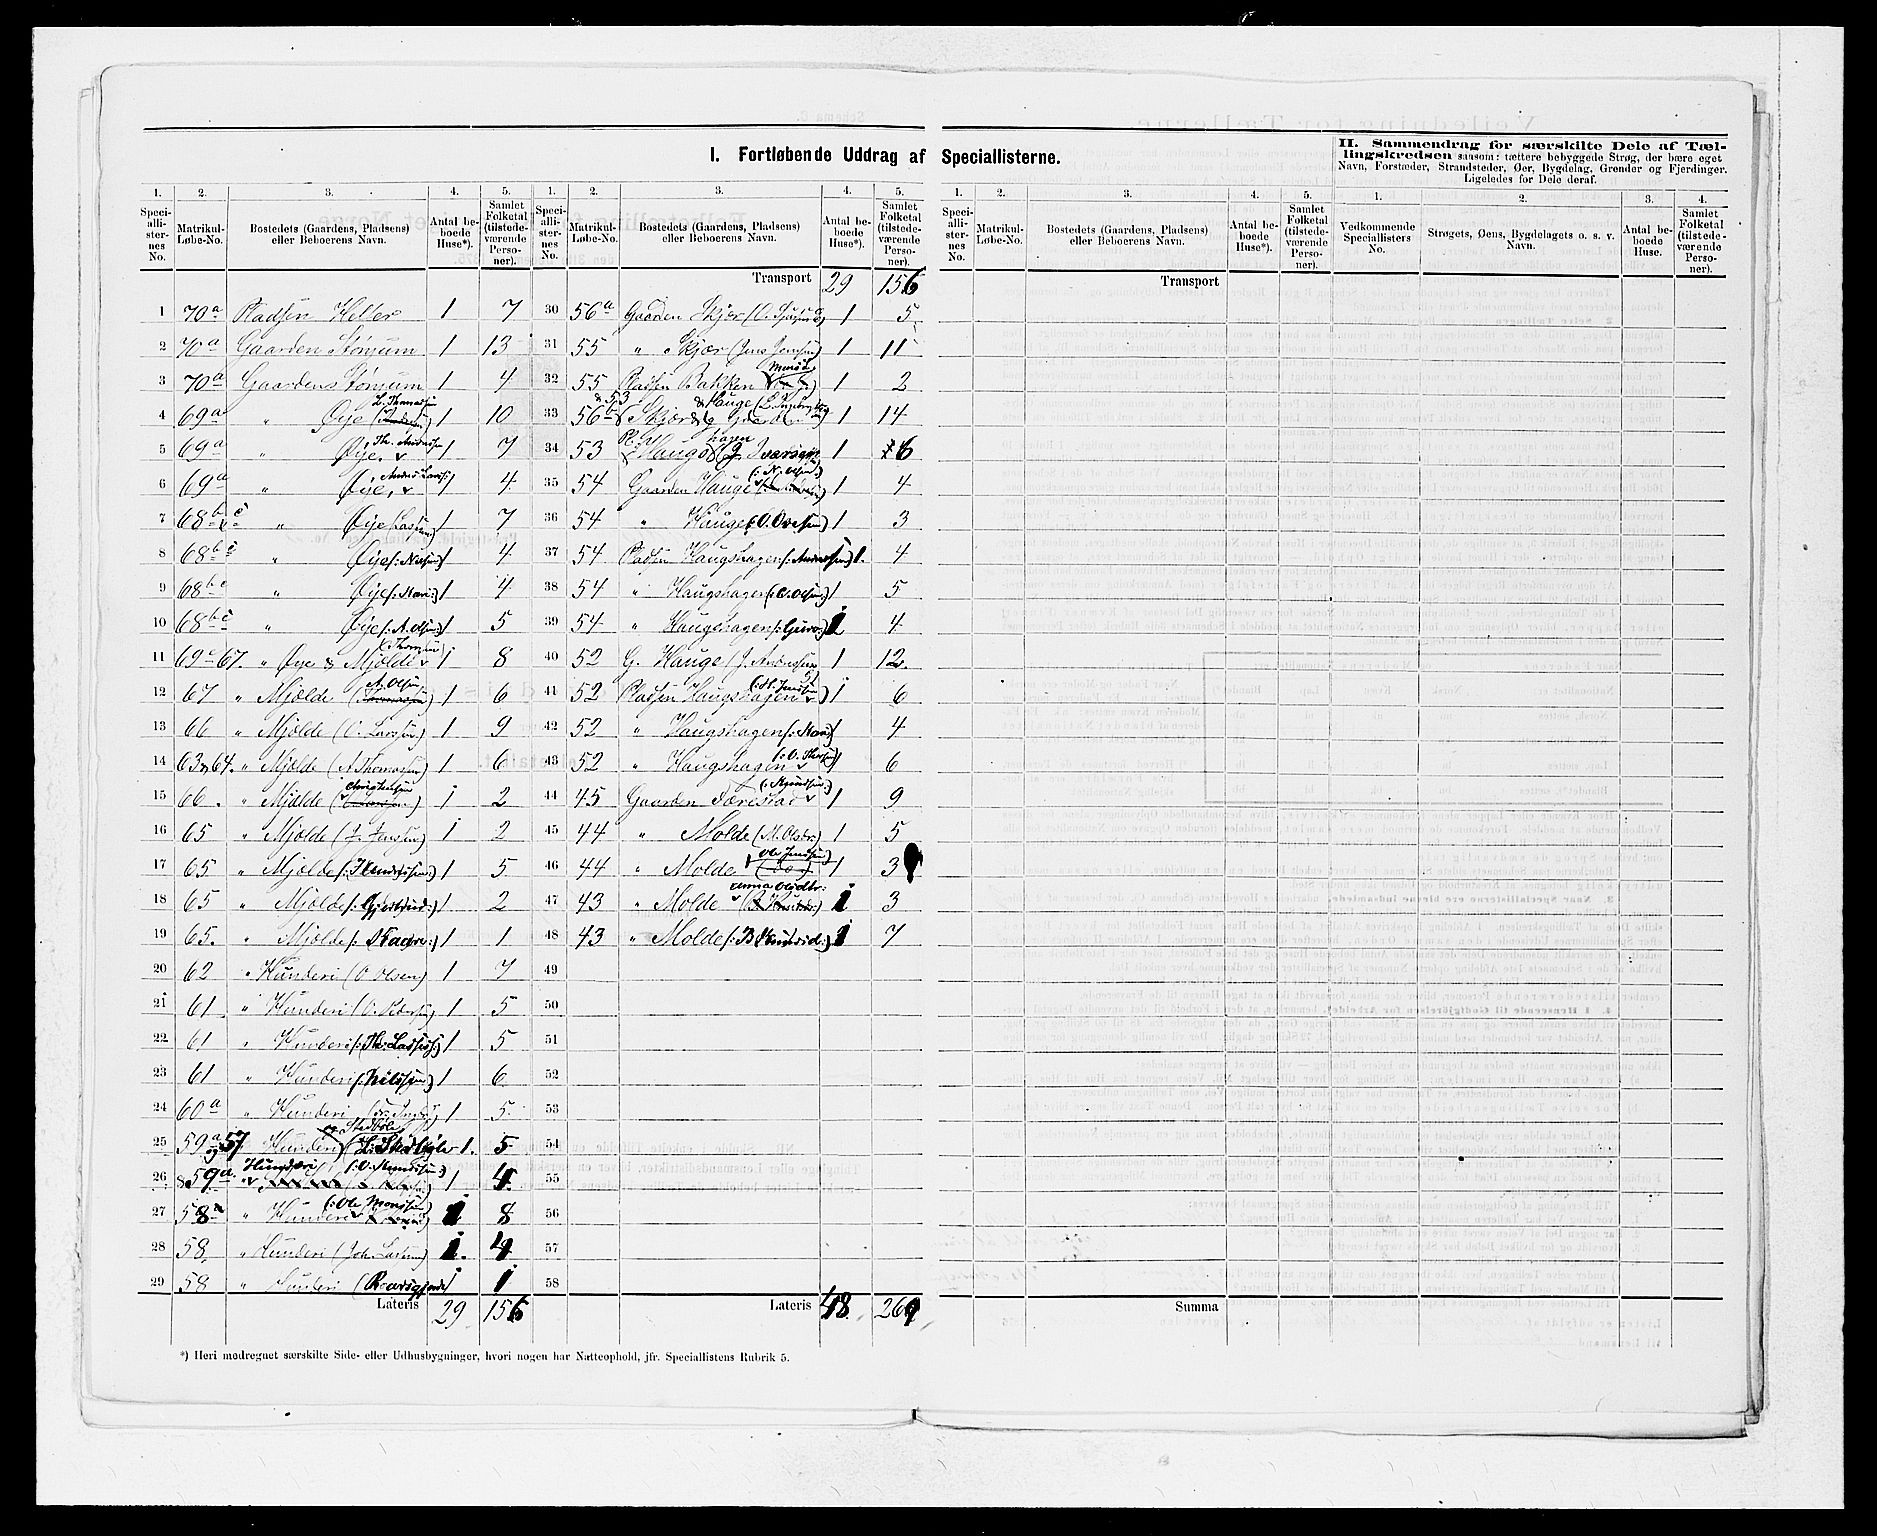 I. Fortløbende Uddrag af Speciallisterne.
II. Sammendrag for særskilte Dele af Tæl-
lingskredsen saasom: tættere bebyggede Strøg, der bære eget
Navn, Forstæder, Strandsteder, Øer, Bygdelag, Grender og Fjerdinger.
Ligeledes for Dele deraf.
1. 2. 3. 4. 5. 1. 2. 3. 4. 5. 1. 2. 3. 4. 5. 1. 2. 3. 4.
Speciallisternes No. Matrikul-Løbe-No. Bostedets (Gaardens, Pladsens) eller Beboerens Navn. Antal beboede Huse*). Samlet Folketal (tilstedeværende Personer).
Speciallisternes No. Matrikul-Løbe-No. Bostedets (Gaardens, Pladsens) eller Beboerens Navn. Antal beboede Huse*). Samlet Folketal (tilstedeværende Personer).
Speciallisternes No. Matrikul-Løbe-No. Bostedets (Gaardens, Pladsens) eller Beboerens Navn. Antal beboede Huse*). Samlet Folketal (tilstedeværende Personer).
Vedkommende Speciallisters No. Strøgets, Øens, Bygdelagets o. s. v. Navn. Antal beboede Huse. Samlet Folketal (tilstedeværende Personer).
1 70a Pladsen Heller 1 7
2 70a Gaarden Stønjum 1 13
3 70a Gaarden Stønjum 1 4
4 69a " Øje L. Thomassen 1 10
5 69a " Øje. Th. Andersen 1 7
6 69a " Øje, Anders Larss: 1 4
7 68b c " Øje 1 7
8 68b c " Øje 1 4
9 68b c " Øje (: Kari:) 1 4
10 68b c " Øje (: A. Olsen:) 1 5
11 69c 67. " Øje & Mjølde 1 8
12 67 " Mjølde A. Olsen 1 6
13 66 " Mjølde (O. Larssen) 1 9
14 63 & 64. " Mjølde (A Thomassen) 1 6
15 66. " Mjølde Christensen 1 2
16 65 " Mjølde (J. Jenssen) 1 2
17 65 " Mjølde 1 5
18 65 " Mjølde 1 2
19 65. " Mjølde (: Kaare:) 1 1
20 62 " Hunderi (O Olsen) 1 7
21 61 " Hunderi (O. Pedersen) 1 5
22 61 " Hunderi (: Th: Lassen:) 1 5
23 61 " Hunderi (: Nilssen:) 1 6
24 60a " Hunderi 1 5.
25 59a og 57 Hunderi og Stedbøle 1. 5
26 59a. " Hunderi 1 4
27 58a " Hunderi (: Ole Monssen) 1 8
28 58. " Hunderi (Joh. Larssen) 1. 4
29 58 " Hunderi 1 1
Lateris 29 156
Transport 29 156
30 56a Gaarden Skjær 1 5
31 55 " Skjær (Jens Jenssen) 1 11
32 55 Pladsen Bakken 1 2
33 56b & 53 Skjær & Hauge 1 14
34 53 Pl. Haugshagen 1 6
35 54 Gaarden Hauge (: N. Olsen:) 1 4
36 54 " Hauge (: O. Olsen) 1 3
37 54 Pladsen Haugshagen (: Anderssen) 1. 4
38 54 " Haugshagen (: O. Olsen:) 1 5
39 54 " Haugshagen (: Guro:) 1 4
40 52 G. Hauge 1 12
41 52 Pladsen Haugshagen 1 6
42 52 " Haugshagen (: Kari:) 4
43 52 " Haugshagen 1 6
44 45 Gaarden Færestad 1 9
45 44 " Molde (M. Olsdr) 1 5
46 44 " Molde Ole Jenssen 1 3
47 43 " Molde Anna Olsdtr: 1 3
48 43 " Molde 1 7
49
50
51
52
53
54
55
56
57
58
Lateris 48 269
Transport
Summa
*) Heri medregnet særskilte Side- eller Udhusbygninger, hvori nogen har Natteophold, jfr. Speciallistens Rubrik 5.